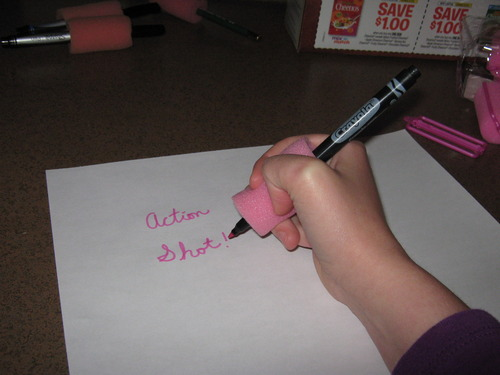 Cheerios
SAVE
$1.00
SAVE
$1.00
Crayola
Action
Shot!